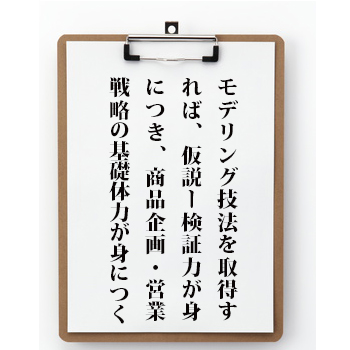 モデリング技法を取得す
れば、仮説ー検証力が身
につき、商品企画・営業
戦略の基礎体力が身につく